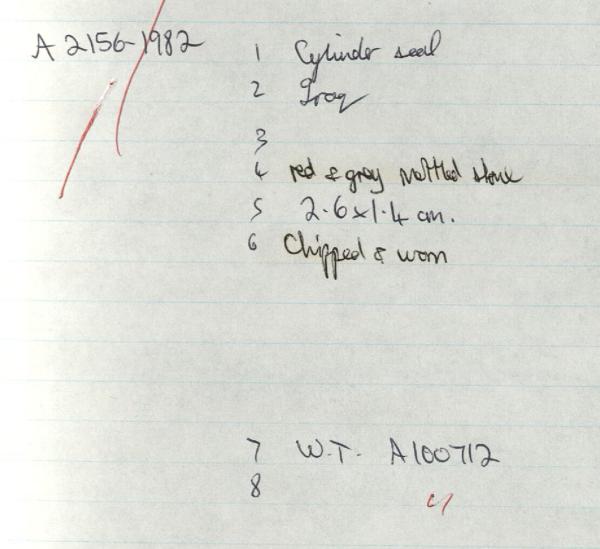 A 2156-1982 1 Cylinder seal
2 Iraq
3
4 red & grey mottled stone
5 2.6x1.4 cm.
6 Chipped & worn
7 W.T. A100712
8